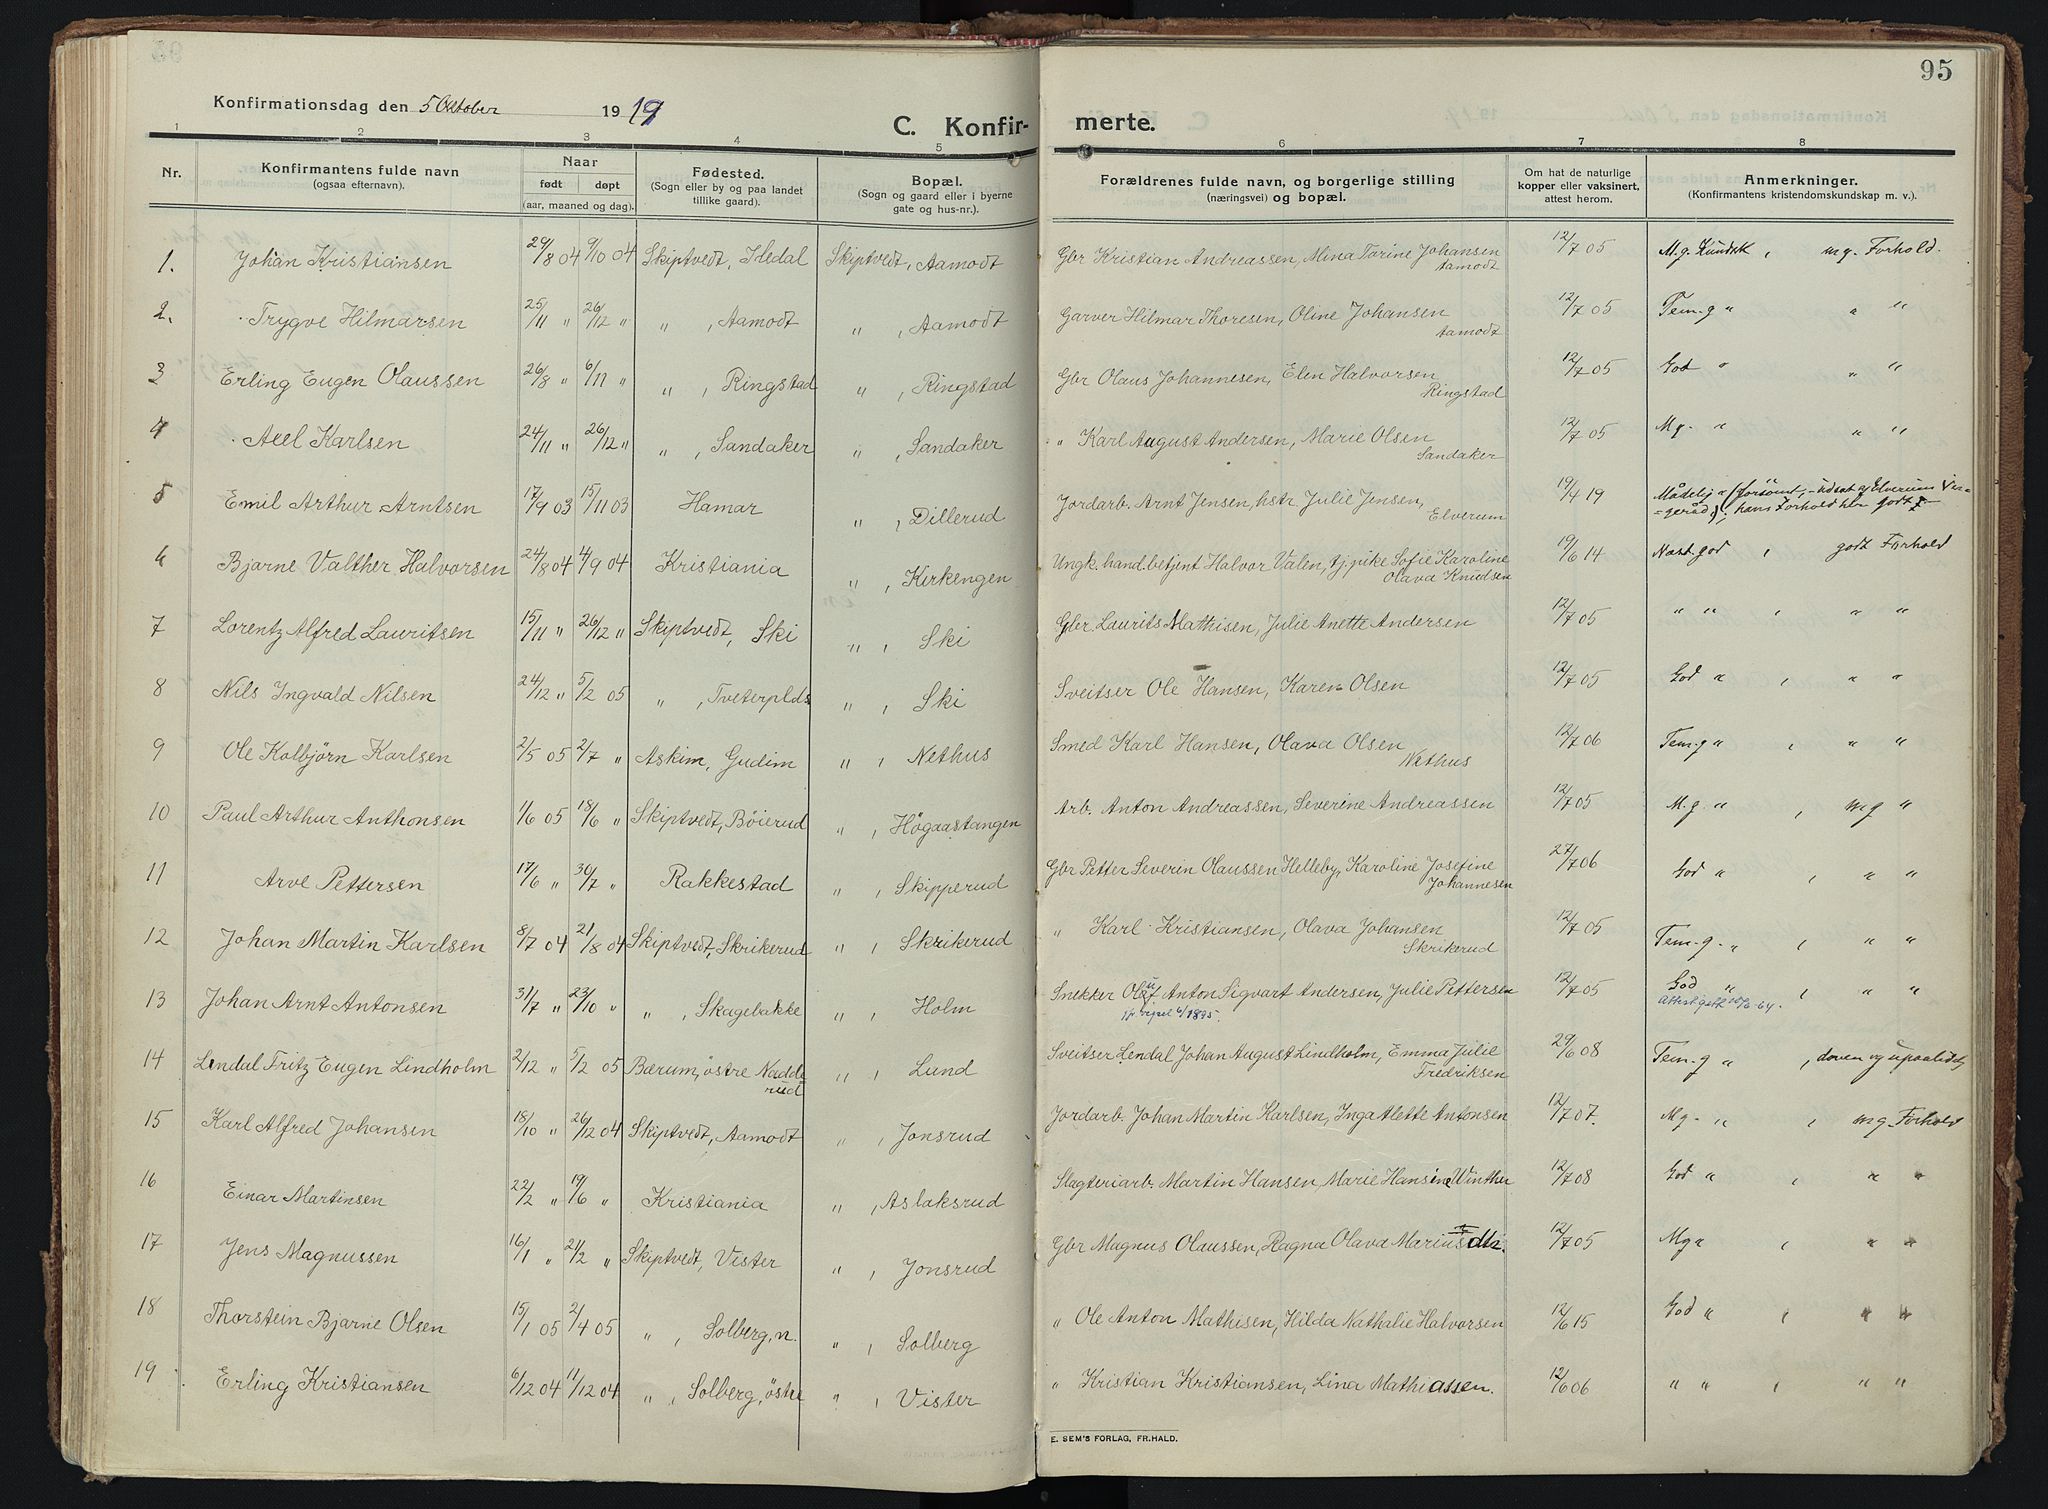 95
Konfirmationsdag den 5 Oktober 1919
C. Konfir- merte.
1 2 3 4 5 6 7 8
Nr. Konfirmantens fulde navn (ogsaa efternavn). Naar født døpt (aar, maaned og dag). Fødested. (Sogn eller by og paa landet tillike gaard). Bopæl. (Sogn og gaard eller i byerne gate og hus-nr.). Forældrenes fulde navn, og borgerlige stilling (næringsvei) og bopæl. Om hat de naturlige kopper eller vaksinert, attest herom. Anmerkninger. (Konfirmantens kristendomskundskap m. v.).
1. Johan Kristiansen 29/8 04 9/10 04 Skiptvedt, Hedal Skiptvedt, Aamodt Gbr Kristian Andreassen, Mina Torine Johansen Aamodt 12/7 05 M.g. Kundsk , mg. Forhold.
2. Trygve Hilmarsen 25/11 " 26/12 " " , Aamodt " , Aamodt Garver Hilmar Thoresen, Oline Johansen Aamodt 12/7 05 Tem.g " " "
3 Erling Eugen Olaussen 26/8 " 6/11 " " , Ringstad " , Ringstad Gbr Olaus Johannesen, Elen Halvorsen Ringstad 12/7 05 God " " "
4 Axel Karlsen 24/11 " 26/12 " " , Sandaker " , Sandaker " Karl August Andersen, Marie Olsen Sandaker 12/7 05 Mg. " " "
5 Emil Arthur Arntsen 17/9 03 15/11 03 Hamar " , Dillerud Jordarb. Arnt Jensen, hstr Julie Jensen, Elverum 19/4 19 Mådelig " (forsömt, - udsat af Elverum Ver- =geråd), hans Forhold her godt
6 Bjarne Valther Halvorsen 24/8 04 4/9 04 Kristiania " , Kirkengen Ungk. hand.betjent Halvor Valen, tj.pike Sofie Karoline Olava Knudsen 19/6 14 Næst.god , godt Forhold
7 Lorentz Alfred Lauritsen 15/11 " 26/12 " Skiptvedt, Ski " , Ski Gbr Laurits Mathisen, Julie Anette Andersen 12/7 05 " " , " "
8 Nils Ingvald Nilsen 24/12 " 5/2 05 " , Tveterplds " , Ski Sveitser Ole Hansen, Karen Olsen 12/7 05 God " , " "
9 Ole Kolbjörn Karlsen 2/5 05 2/7 " Askim, Gudim " , Nethus Smed Karl Hansen, Olava Olsen Nethus 12/7 06 Tem.g " , " "
10 Paul Arthur Anthonsen 1/6 05 18/6 " Skiptvedt, Böierud " , Högaastangen Arb. Anton Andreassen, Severine Andreassen 12/7 05 M.g. " , mg "
11 Arve Pettersen 17/6 " 30/7 " Rakkestad " , Skipperud Gbr Petter Severin Olaussen Helleby, Karoline Josefine Johannesen 27/7 06 God " , " "
12 Johan Martin Karlsen 8/7 04 21/8 04 Skiptvedt, Skrikerud " , Skrikerud " Karl Kristiansen, Olava Johansen Skrikerud 12/7 05 Tem.g. " , " "
13 Johan Arnt Antonsen 31/7 " 23/10 " " , Skagebakke " , Holm Snekker Oluf Anton Sigvart Andersen, Julie Pettersen 12/7 05 God " , " "
14 Lendal Fritz Eugen Lindholm 2/12 " 5/2 05 Bærum, östre Nadderud " , Lund Sveitser Lendal Johan August Lindholm, Emma Julie Fredriksen 29/6 08 Tem.g " , doven og upaalidelig
15 Karl Alfred Johansen 18/10 " 26/12 04 Skiptvedt, Aamodt " , Jonsrud Jordarb. Johan Martin Karlsen, Inga Alette Antonsen 12/7 07. Mg. " , mg. Forhold
16 Einar Martinsen 22/2 " 19/6 " Kristiania " , Aslaksrud Slagteriarb. Martin Hansen, Marie Hansine Winther 12/7 08 God " , " "
17 Jens Magnussen 16/1 " 21/2 " Skiptvedt, Vister " , Jonsrud Gbr Magnus Olaussen, Ragna Olava Mariusdtr. 12/7 05 Mg " , " "
18 Thorstein Bjarne Olsen 15/1 05 2/4 05 " , Solberg, n. " , Solberg " Ole Anton Mathisen, Hilda Nathalie Halvorsen 12/6 15 God " , " "
19 Erling Kristiansen 6/12 04 11/12 04 " , Solberg, östre " , Vister " Kristian Kristiansen, Lina Mathiassen. 12/6 06 " " , " "
E. SEM'S FORLAG, FR.HALD.